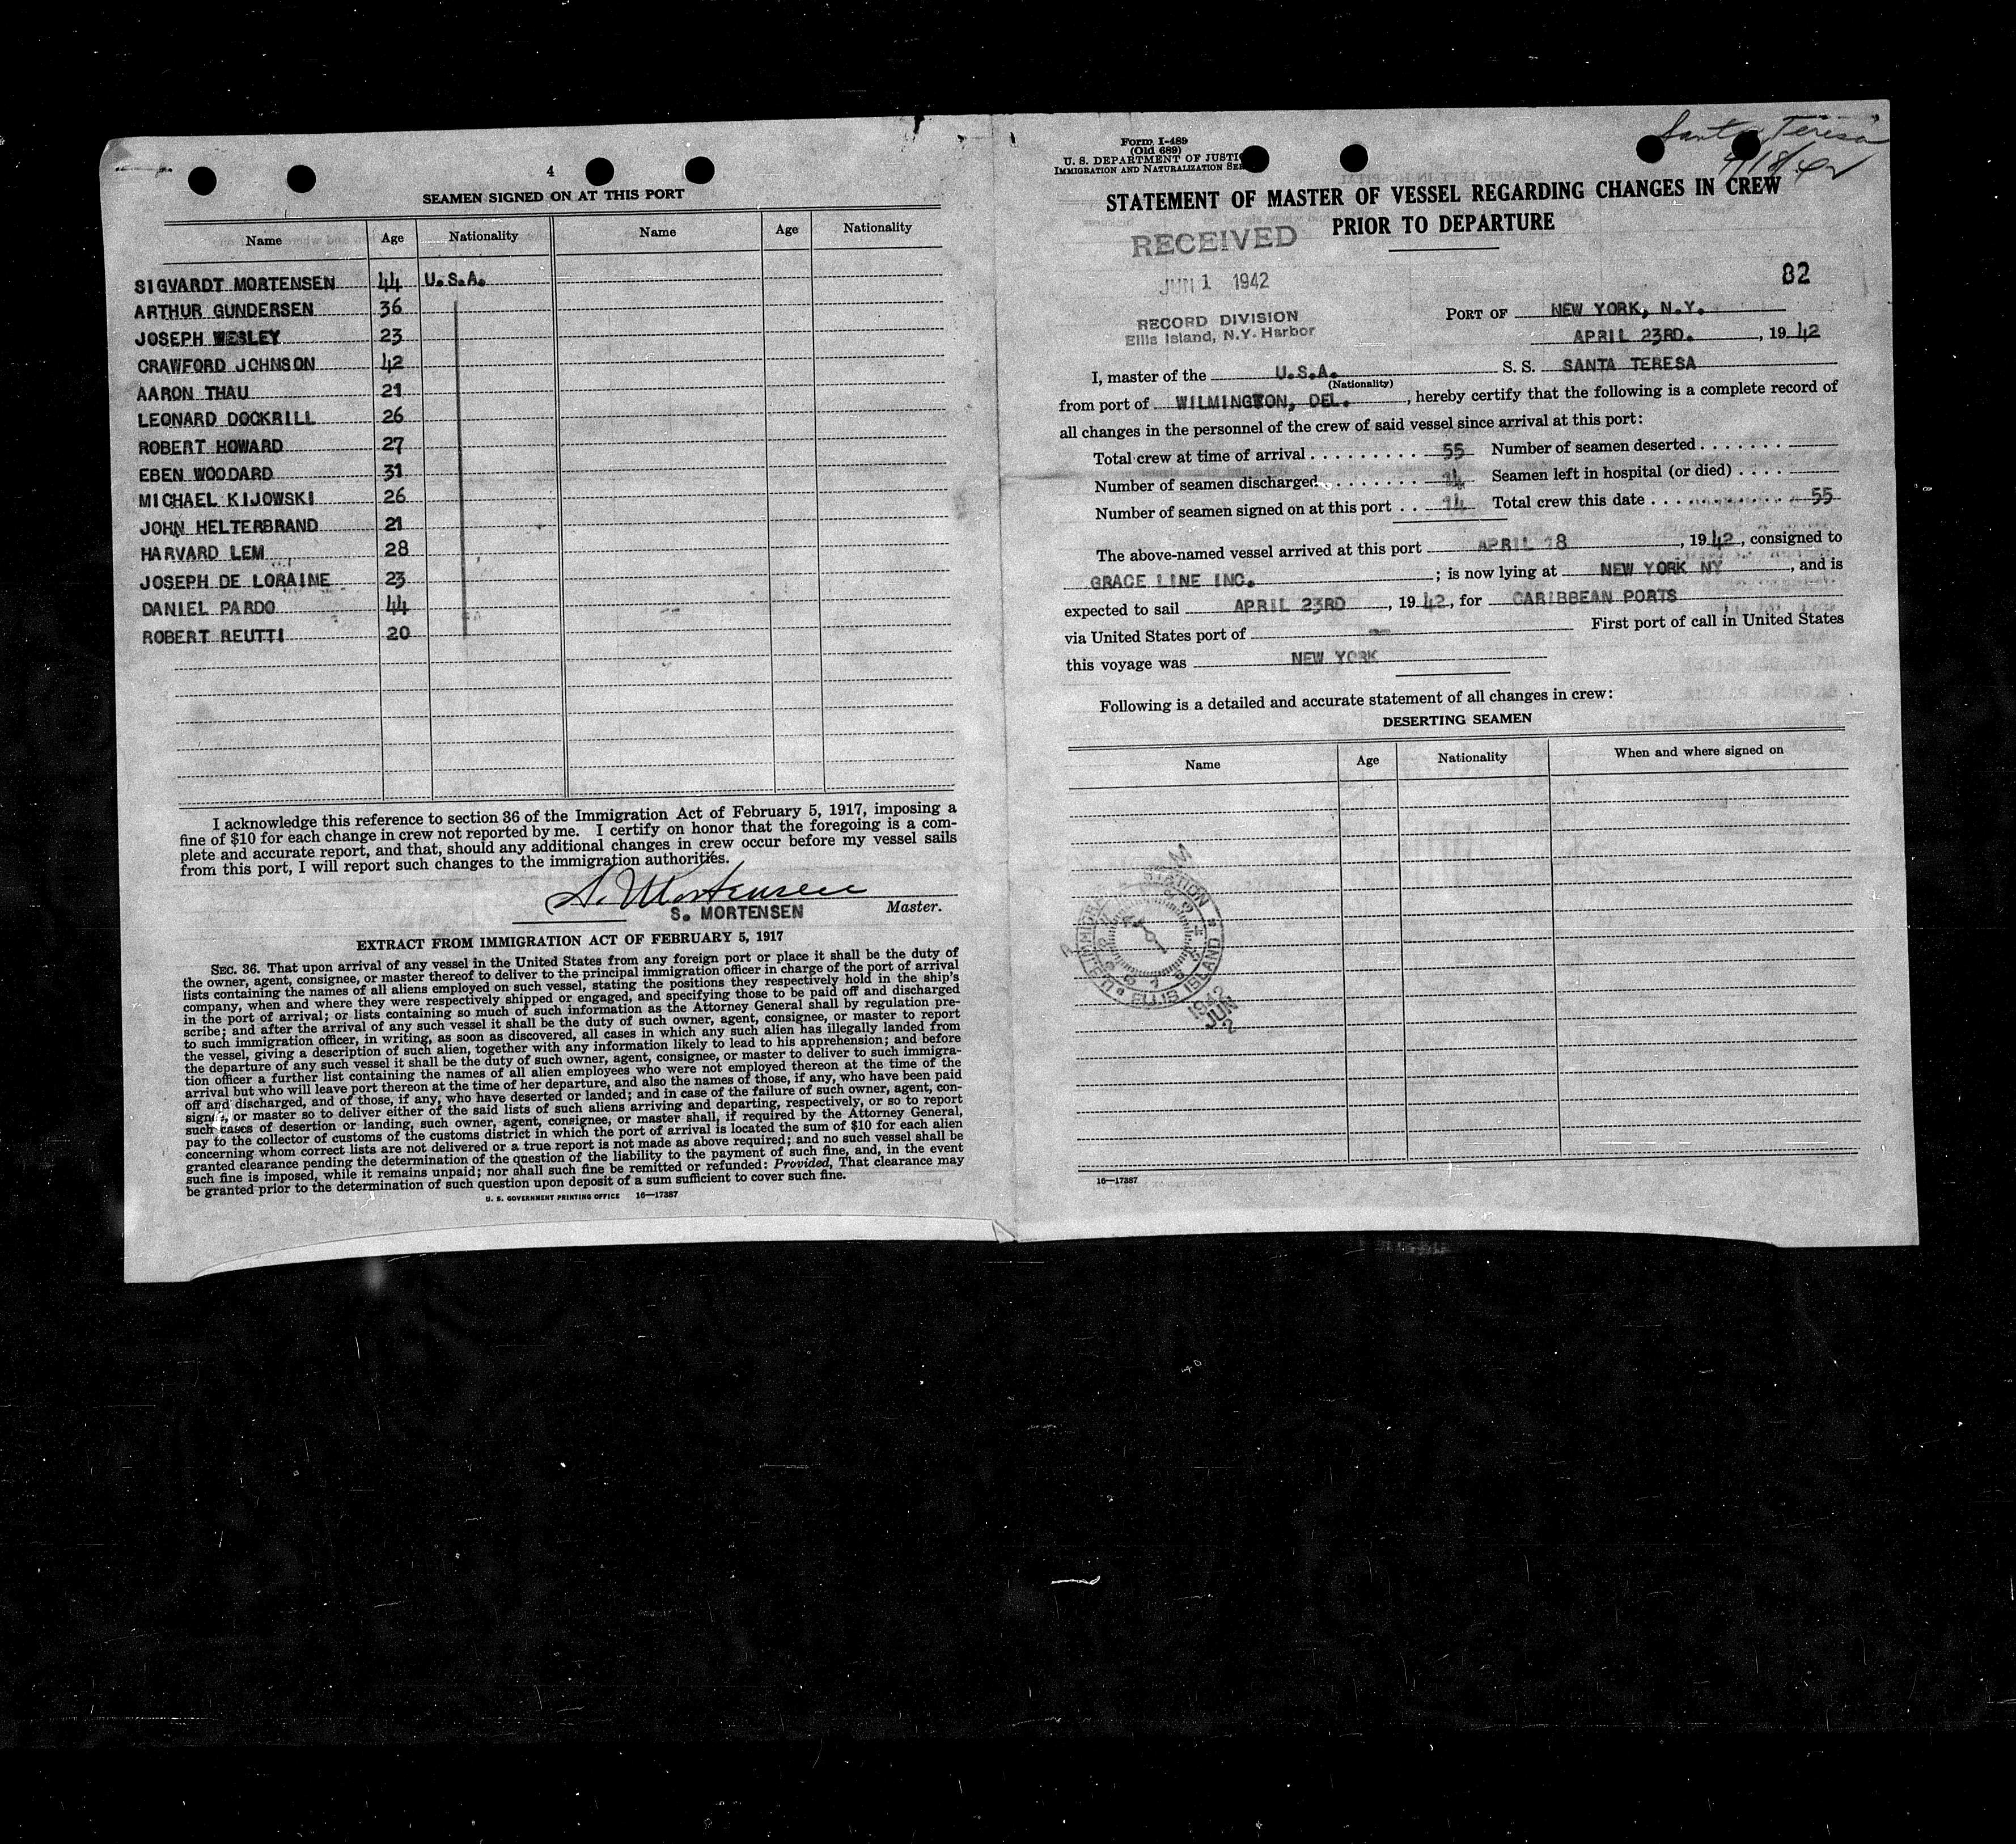 4
SEAMEN SIGNED ON AT THIS PORT
Name Age Nationality Name Age Nationality
SIGVARDT MORTENSEN 44 U.S.A.
ARTHUR GUNDERSEN 36
JOSEPH WESLEY 23
CRAWFORD JOHNSON 42
AARON THAU 21
LEONARD DOCKRILL 26
ROBERT HOWARD 27
EBEN WOODARD 31
MICHAEL KIJOWSKI 26
JOHN HELTERBRAND 21
HARVARD LEM 28
JOSEPH DE LORAINE 23
DANIEL PARDO 44
ROBERT REUTTI 20
I acknowledge this reference to section 36 of the Immigration Act of February 5, 1917, imposing a
fine of $10 for each change in crew not reported by me. I certify on honor that the foregoing is a com-
plete and accurate report, and that, should any additional changes in crew occur before my vessel sails
from this port, I will report such changes to the immigration authorities.
S. Mortensen
S. MORTENSEN Master.
EXTRACT FROM IMMIGRATION ACT OF FEBRUARY 5, 1917
SEC. 36. That upon arrival of any vessel in the United States from any foreign port or place it shall be the duty of
the owner, agent, consignee, or master thereof to deliver to the principal immigration officer in charge of the port of arrival
lists containing the names of all aliens employed on such vessel, stating the positions they respectively hold in the ship's
company, when and where they were respectively shipped or engaged, and specifying those to be paid off and discharged
in the port of arrival; or lists containing so much of such information as the Attorney General shall by regulation pre-
scribe; and after the arrival of any such vessel it shall be the duty of such owner, agent, consignee, or master to report
to such immigration officer, in writing, as soon as discovered, all cases in which any such alien has illegally landed from
the vessel, giving a description of such alien, together with any information likely to lead to his apprehension; and before
the departure of any such vessel it shall be the duty of such owner, agent, consignee, or master to deliver to such immigra-
tion officer a further list containing the names of all alien employees who were not employed thereon at the time of the
arrival but who will leave port thereon at the time of her departure, and also the names of those, if any, who have been paid
off and discharged, and of those, if any, who have deserted or landed; and in case of the failure of such owner, agent, con-
signee, or master so to deliver either of the said lists of such aliens arriving and departing, respectively, or so to report
such cases of desertion or landing, such owner, agent, consignee, or master shall, if required by the Attorney General,
pay to the collector of customs of the customs district in which the port of arrival is located the sum of $10 for each alien
concerning whom correct lists are not delivered or a true report is not made as above required; and no such vessel shall be
granted clearance pending the determination of the question of the liability to the payment of such fine, and, in the event
such fine is imposed, while it remains unpaid; nor shall such fine be remitted or refunded: Provided, That clearance may
be granted prior to the determination of such question upon deposit of a sum sufficient to cover such fine.
U. S. GOVERNMENT PRINTING OFFICE 16—17387
Santa Teresa
4/18/42
Form I-489
(Old 689)
U. S. DEPARTMENT OF JUSTI
IMMIGRATION AND NATURALIZATION SER
STATEMENT OF MASTER OF VESSEL REGARDING CHANGES IN CREW
PRIOR TO DEPARTURE
RECEIVED
JUN 1 1942
RECORD DIVISION
Ellis Island, N.Y. Harbor
82
PORT OF NEW YORK, N.Y.
APRIL 23RD. , 19 42
I, master of the U.S.A. S. S. SANTA TERESA
(Nationality)
from port of WILMINGTON, DEL. , hereby certify that the following is a complete record of
all changes in the personnel of the crew of said vessel since arrival at this port:
Total crew at time of arrival . . . . . . . . . 55 Number of seamen deserted . . . . . . .
Number of seamen discharged . . . . . . . 14 Seamen left in hospital (or died) . . . .
Number of seamen signed on at this port . . 14 Total crew this date . . . 55
The above-named vessel arrived at this port APRIL 18 , 19 42, consigned to
GRACE LINE INC. ; is now lying at NEW YORK NY , and is
expected to sail APRIL 23RD , 19 42, for CARIBBEAN PORTS
via United States port of -- First port of call in United States
this voyage was NEW YORK
Following is a detailed and accurate statement of all changes in crew:
DESERTING SEAMEN
Name Age Nationality When and where signed on
ELLIS ISLAND
1942 JUN 2
16—17387